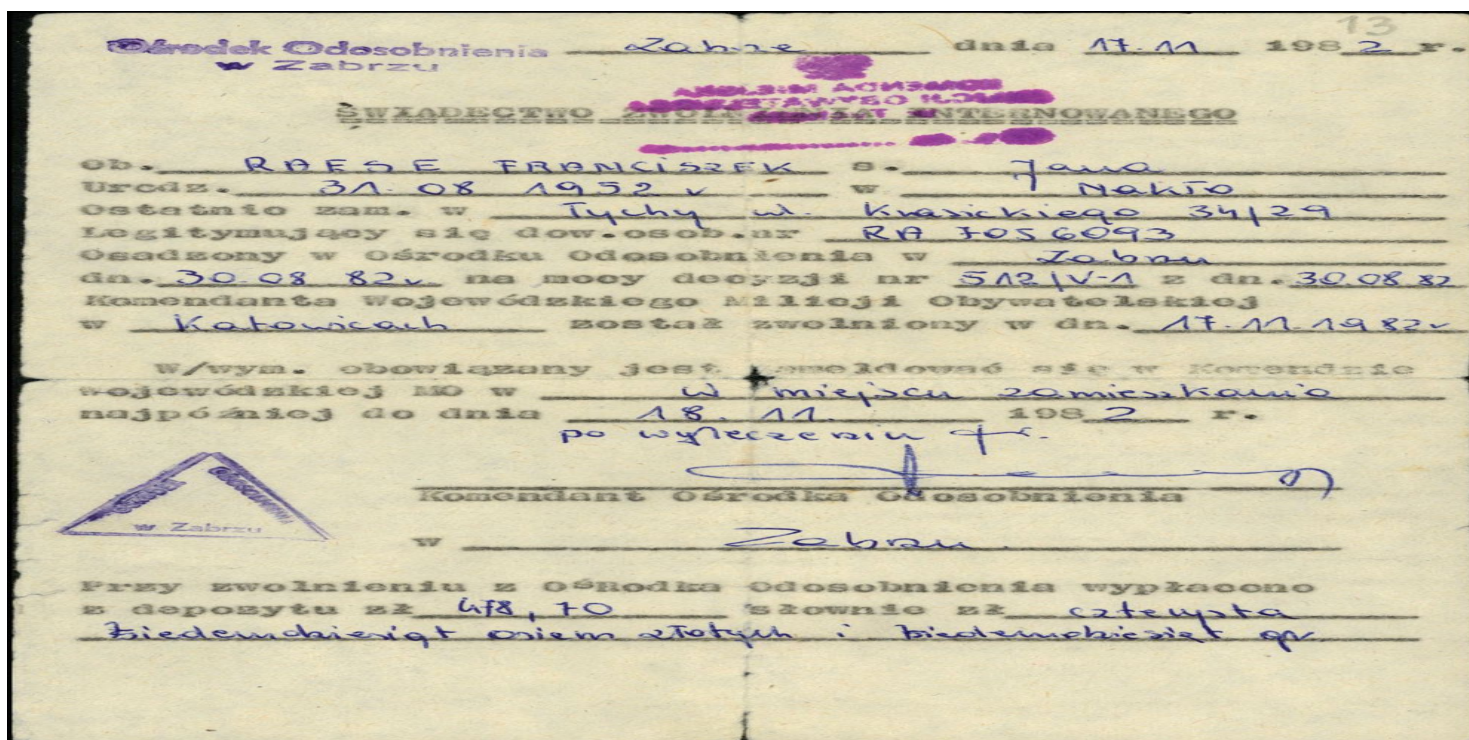 13
Ośrodek Odosobnienia Zabrze dnia 17.11 1982 r.
w Zabrzu
ŚWIADECTWO ZWOLNIENIA INTERNOWANEGO
Ob. RAESE FRANCISZEK s. Jana
Urodz. 31.08 1952 r w Nakło
Ostatnio zam. w Tychy ul. Krasickiego 34/29
Legitymujący się dow.osob.nr RA 7056093
Osadzony w Ośrodku Odosobnienia w Zabrzu
dn. 30.08 82r. na mocy decyzji nr 512/V-1 z dn. 30.08 82
Komendanta Wojewódzkiego Milicji Obywatelskiej
w Katowicach został zwolniony w dn. 17.11.1982r
W/wym. obowiązany jest zameldować się w Komendzie
Wojewódzkiej MO w w miejscu zamieszkania
najpóźniej do dnia 18. 11. 1982 r.
po wyleczeniu
Komendant Ośrodka Odosobnienia
w Zabrzu
w Zabrzu
Przy zwolnieniu z Ośrodka Odosobnienia wypłacono
z depozytu zł 478,70 słownie zł czterysta
siedemdziesiąt osiem złotych i siedemdziesiąt gr